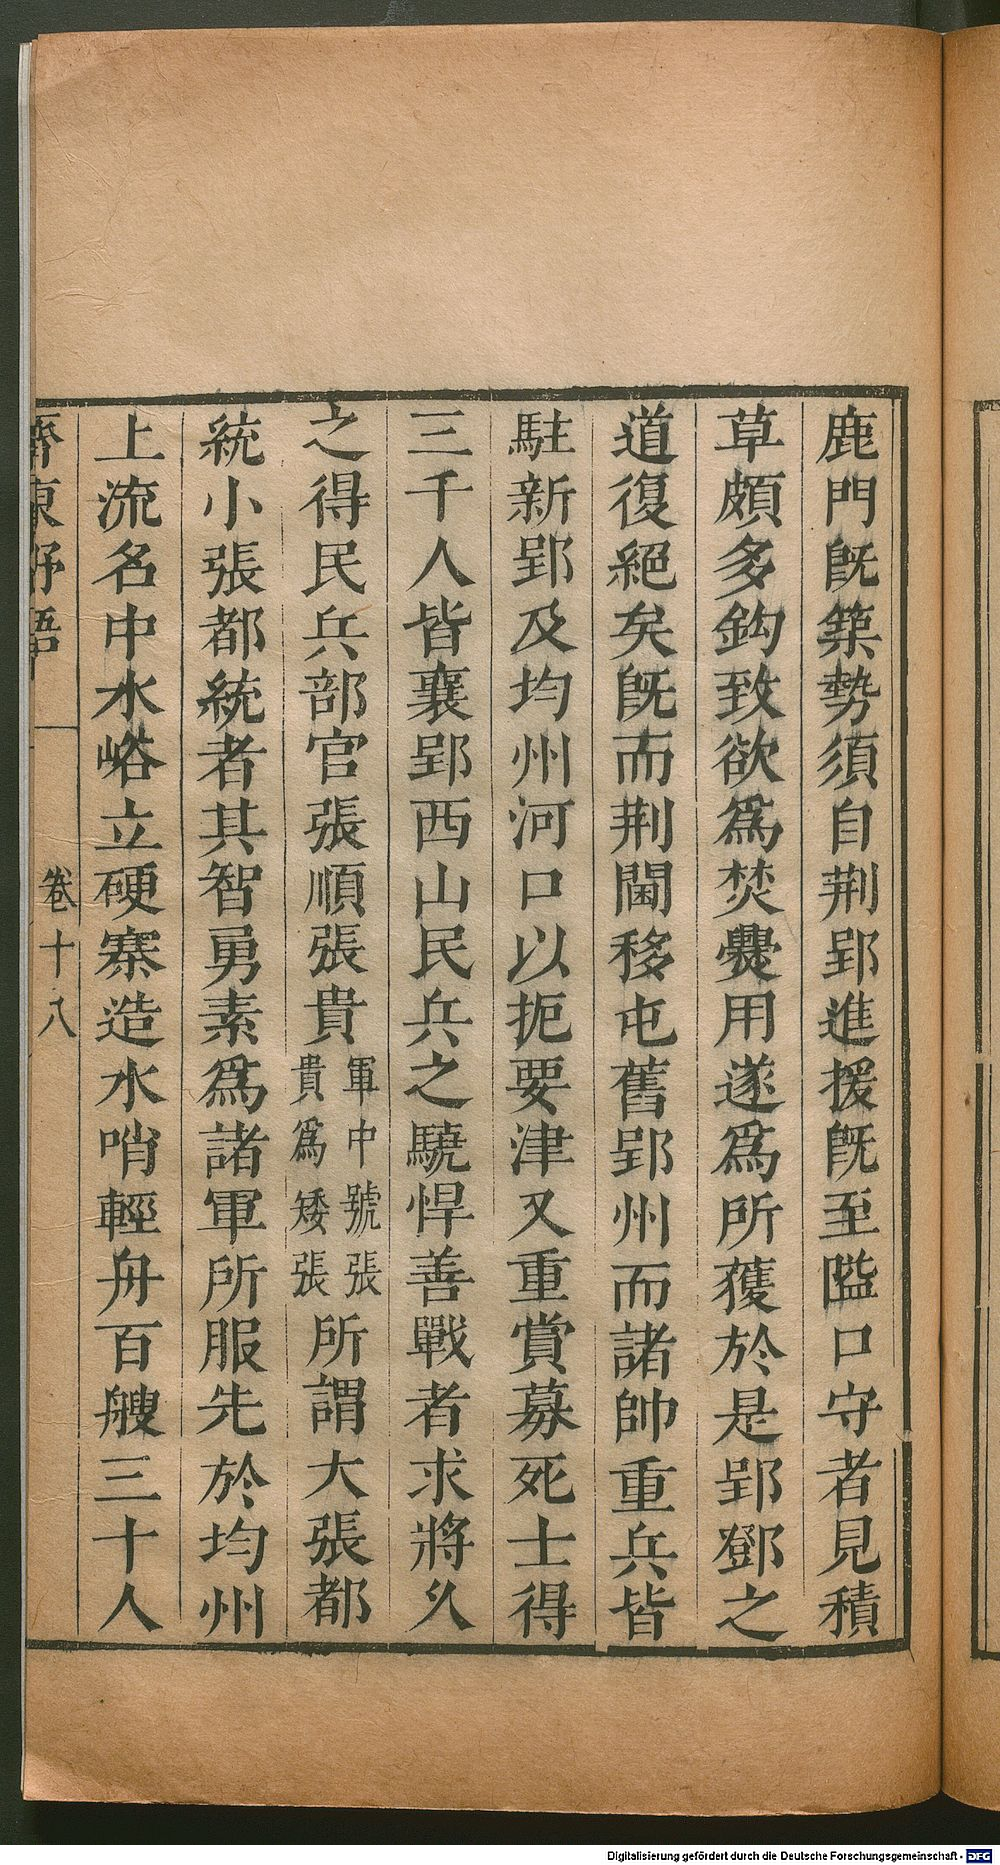 鹿門旣築勢須自荆郢進援旣至隘口守者見積
草頗多鈎致欲爲焚爨用遂爲所獲於是郢鄧之
道復絕矣旣而荆閫移屯舊郢州而諸帥重兵皆
駐新郢及均州河口以扼要津又重賞募死士得
三千人皆襄郢西山民兵之驍悍善戰者求將久
之得民兵部官張順張貴軍中號張貴爲矮張所謂大張都
統小張都統者其智勇素爲諸軍所服先於均州
上流名中水峪立硬寨造水哨輕舟百艘三十人
齊東野語
卷十八
Digitalisierung gefördert durch die Deutsche Forschungsgemeinschaft - DFG